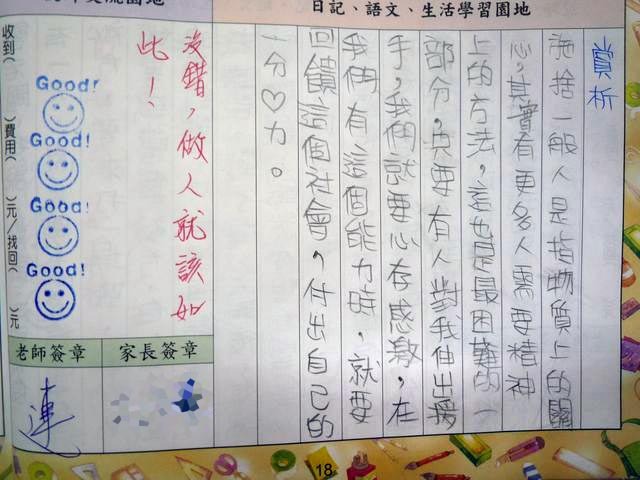 日記、語文、生活學習園地
賞析
施捨一般人是指物質上的關
心，其實有更多人需要精神
上的方法，這也是最困難的一
部分，只要有人對我伸出援
手，我們就要心存感激，在
我們有這個能力時，就要
回饋這個社會，付出自己的
一分♡力。
沒錯，做人就該如
此！
收到( )費用( )元/找回( )元
Good!
Good!
Good!
Good!
家長簽章
老師簽章
連
18